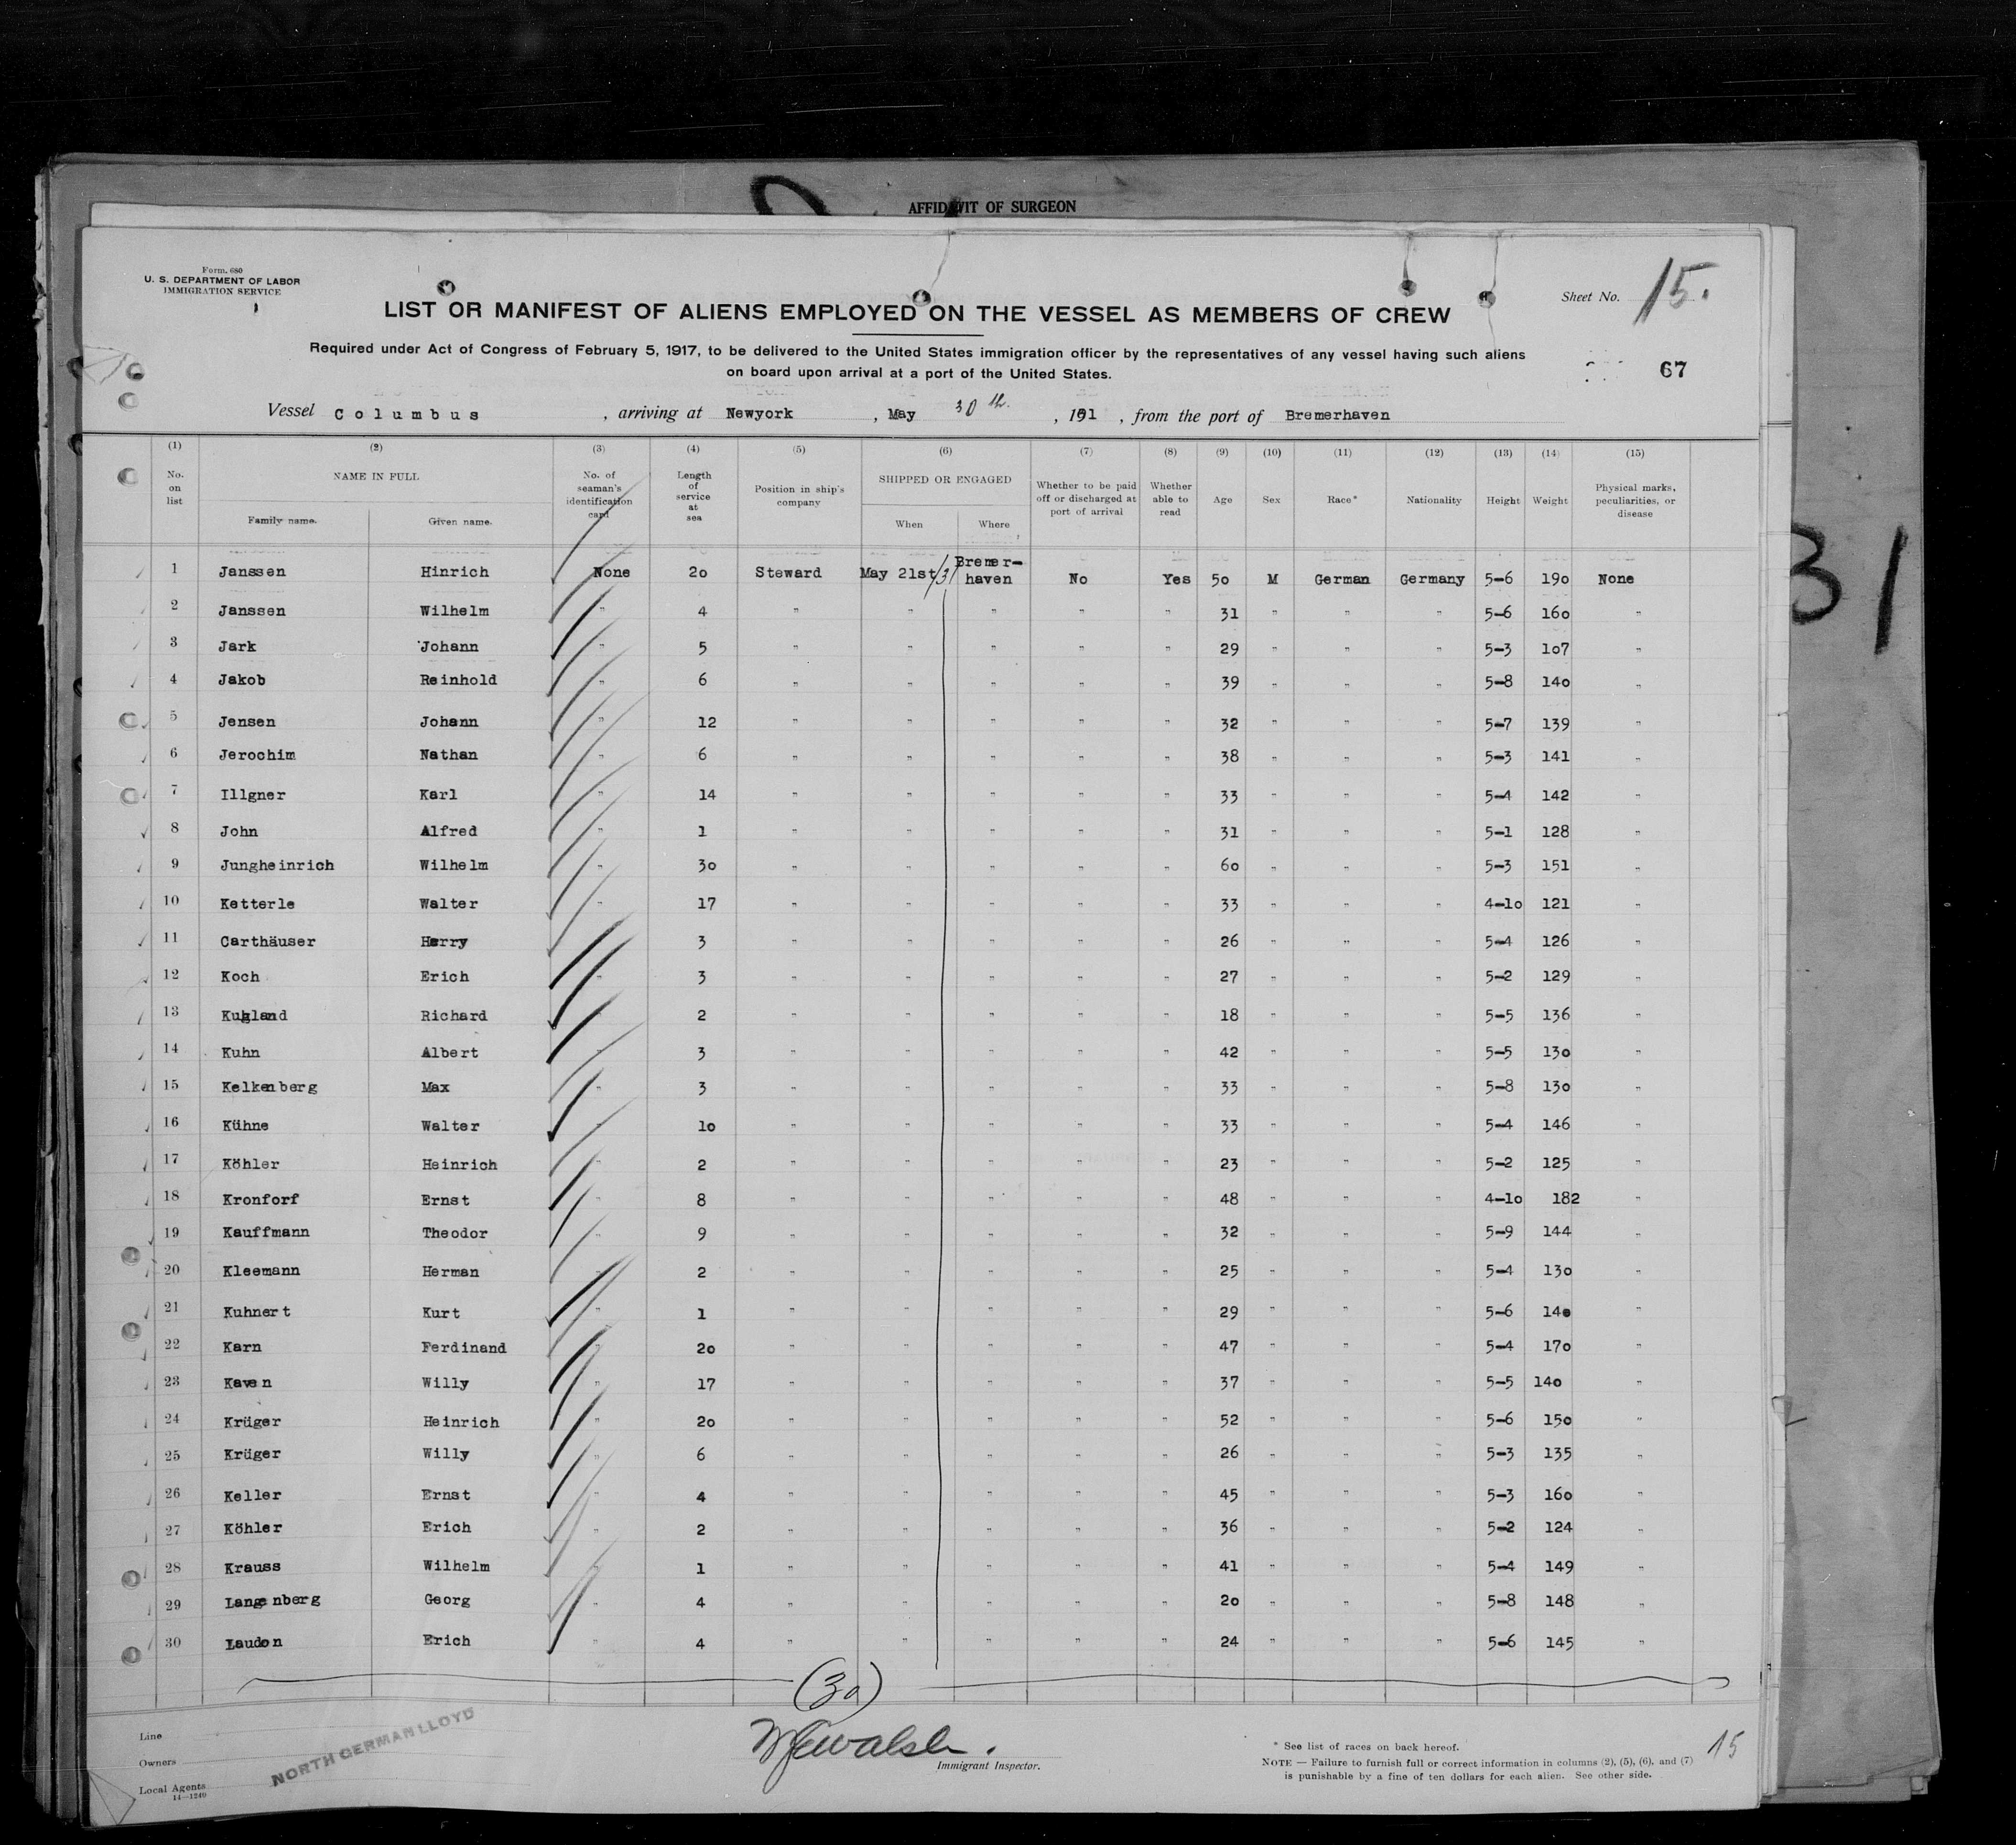 AFFIDAVIT OF SURGEON
Form 680
U. S. DEPARTMENT OF LABOR
IMMIGRATION SERVICE
Sheet No. 15.
LIST OR MANIFEST OF ALIENS EMPLOYED ON THE VESSEL AS MEMBERS OF CREW
Required under Act of Congress of February 5, 1917, to be delivered to the United States immigration officer by the representatives of any vessel having such aliens
on board upon arrival at a port of the United States.
67
Vessel Columbus, arriving at Newyork, May 30th., 1931, from the port of Bremerhaven
(1) (2) (3) (4) (5) (6) (7) (8) (9) (10) (11) (12) (13) (14) (15)
No. on list NAME IN FULL Family name. Given name. No. of seaman's identification card Length of service at sea Position in ship's company SHIPPED OR ENGAGED When Where Whether to be paid off or discharged at port of arrival Whether able to read Age Sex Race* Nationality Height Weight Physical marks, peculiarities, or disease
1 Janssen Hinrich None 20 Steward May 21st/31 Bremer-haven No Yes 50 M German Germany 5-6 190 None
2 Janssen Wilhelm " 4 " " " " " 31 " " " 5-6 160 "
3 Jark Johann " 5 " " " " " 29 " " " 5-3 107 "
4 Jakob Reinhold " 6 " " " " " 39 " " " 5-8 140 "
5 Jensen Johann " 12 " " " " " 32 " " " 5-7 139 "
6 Jerochim Nathan " 6 " " " " " 38 " " " 5-3 141 "
7 Illgner Karl " 14 " " " " " 33 " " " 5-4 142 "
8 John Alfred " 1 " " " " " 31 " " " 5-1 128 "
9 Jungheinrich Wilhelm " 30 " " " " " 60 " " " 5-3 151 "
10 Ketterle Walter " 17 " " " " " 33 " " " 4-10 121 "
11 Carthäuser Harry " 3 " " " " " 26 " " " 5-4 126 "
12 Koch Erich " 3 " " " " " 27 " " " 5-2 129 "
13 Richard " 2 " " " " " 18 " " " 5-5 136 "
14 Kuhn Albert " 3 " " " " " 42 " " " 5-5 130 "
15 Kelkenberg Max " 3 " " " " " 33 " " " 5-8 130 "
16 Kühne Walter " 10 " " " " " 33 " " " 5-4 146 "
17 Köhler Heinrich " 2 " " " " " 23 " " " 5-2 125 "
18 Kronforf Ernst " 8 " " " " " 48 " " " 4-10 182 "
19 Kauffmann Theodor " 9 " " " " " 32 " " " 5-9 144 "
20 Kleemann Herman " 2 " " " " " 25 " " " 5-4 130 "
21 Kuhnert Kurt " 1 " " " " " 29 " " " 5-6 140 "
22 Karn Ferdinand " 20 " " " " " 47 " " " 5-4 170 "
23 Kaven Willy " 17 " " " " " 37 " " " 5-5 140 "
24 Krüger Heinrich " 20 " " " " " 52 " " " 5-6 150 "
25 Krüger Willy " 6 " " " " " 26 " " " 5-3 135 "
26 Keller Ernst " 4 " " " " " 45 " " " 5-3 160 "
27 Köhler Erich " 2 " " " " " 36 " " " 5-2 124 "
28 Krauss Wilhelm " 1 " " " " " 41 " " " 5-4 149 "
29 Langenberg Georg " 4 " " " " " 20 " " " 5-8 148 "
30 Laudon Erich " 4 " " " " " 24 " " " 5-6 145 "
(30)
Line
Owners
Local Agents
14—1240
NORTH GERMAN LLOYD
Walsh.
Immigrant Inspector.
* See list of races on back hereof.
NOTE — Failure to furnish full or correct information in columns (2), (5), (6), and (7)
is punishable by a fine of ten dollars for each alien. See other side.
15
31